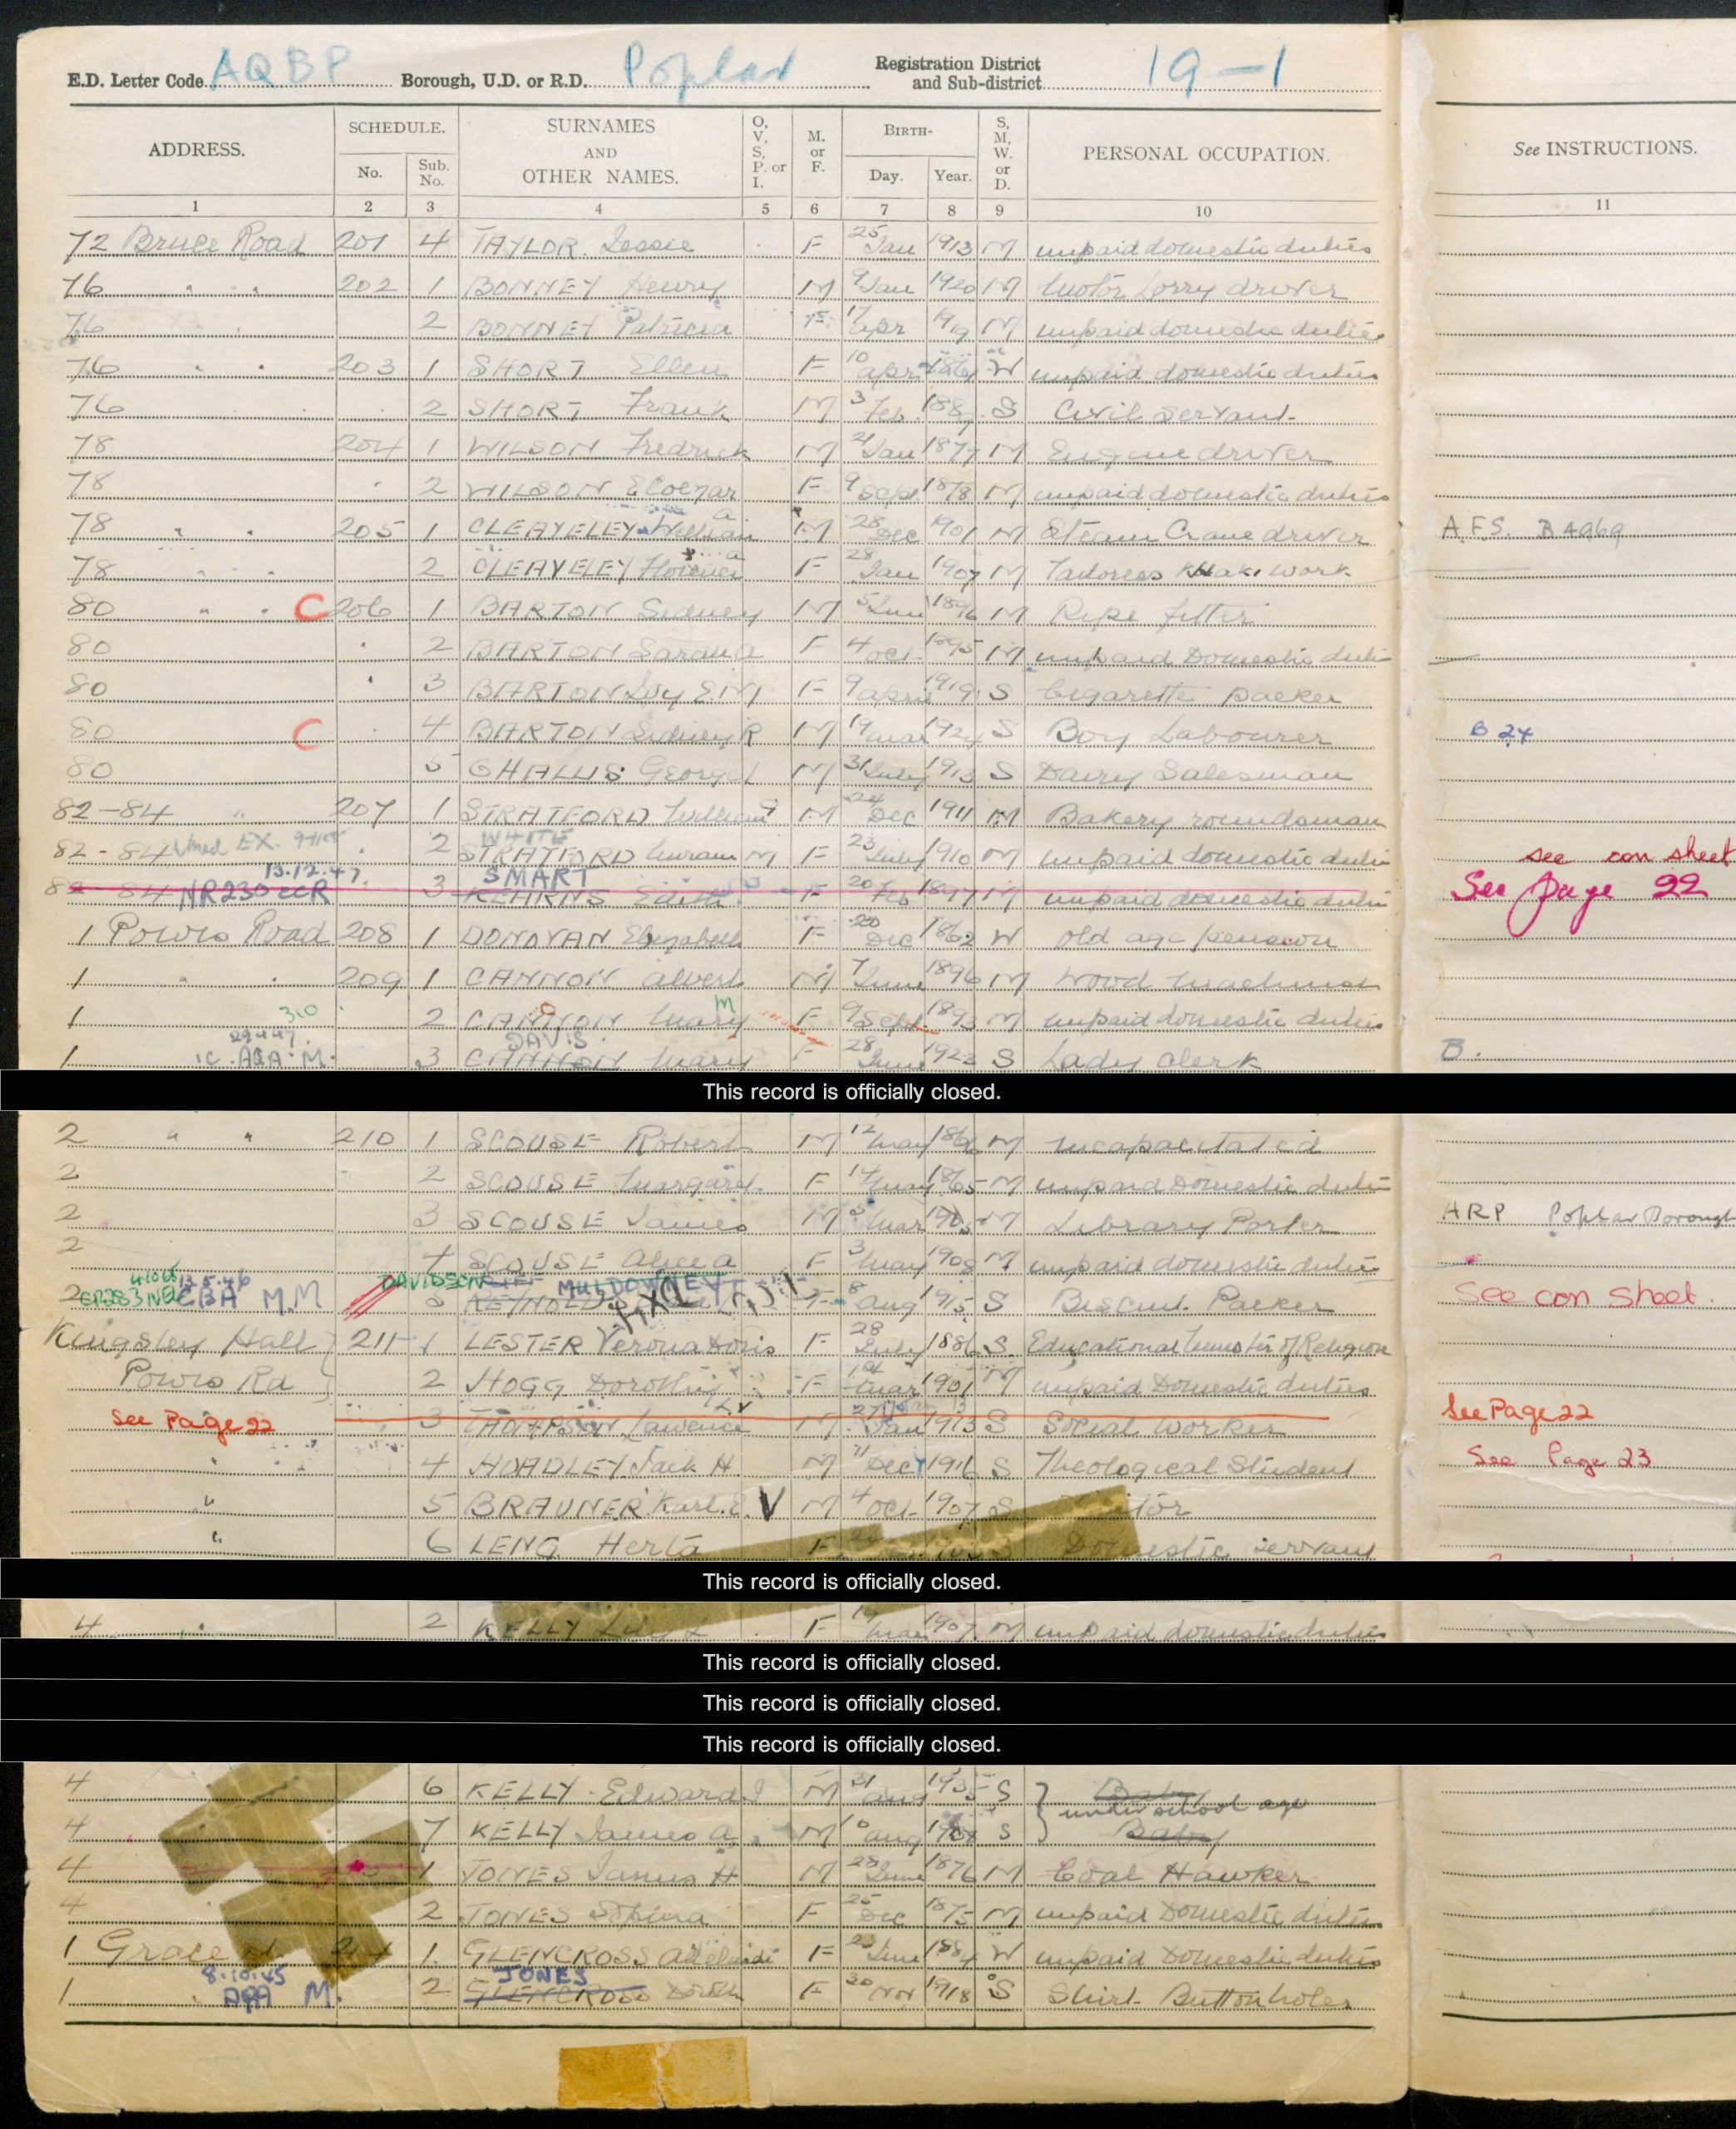 E.D. Letter Code AQBP Borough, U.D. or R.D. Poplar Registration District and Sub-district 19-1
ADDRESS. SCHEDULE. No. Sub. No. SURNAMES AND OTHER NAMES. O, V, S, P. or I. M. or F. BIRTH- Day. Year. S, M, W. or D. PERSONAL OCCUPATION. See INSTRUCTIONS.
1 2 3 4 5 6 7 8 9 10 11
72 Bruce Road 201 4 TAYLOR Jessie F 25 Jan 1913 M unpaid domestic duties
76 " " 202 1 BONNEY Henry M 9 Jan 1920 M Motor Lorry driver
76 2 BONNEY Patricia F 17 Apr 1919 M unpaid domestic duties
76 " " 203 1 SHORT Ellen F 10 Apr W unpaid domestic duties
76 2 SHORT Frank M 3 Feb 1887 S Civil Servant
78 204 1 WILSON Fredrick M 21 Jan 1877 M Engine driver
78 2 WILSON F 9 Sept 1878 M unpaid domestic duties
78 " " 205 1 CLEAVELEY William A M 28 Dec 1901 M Steam Crane driver A.F.S. B4969
78 2 CLEAVELEY Florence A F 28 Jan 1907 M Tailoress Khaki work
80 " " C 206 1 BARTON Sidney M 5 June 1896 M Pipe fitter
80 2 BARTON Sarah A F 4 Oct 1895 M unpaid Domestic duties
80 3 BARTON Ivy E.M F 9 April 1919 S Cigarette packer
80 C 4 BARTON Sidney R M 19 Mar 1924 S Boy Labourer B 24
80 5 CHALLIS George L M 31 July 1913 S Dairy Salesman
82-84 " 207 1 STRATFORD William M 24 Dec 1911 M Bakery roundsman
WHITE
82-84 EX. 2 STRATFORD Miriam M F 23 July 1910 M unpaid domestic duties see con sheet
13.12.47. SMART
82-84 NR230 CCR 3 KEHRNS Edith F 20 Feb 1897 M unpaid domestic duties See page 22
1 Powis Road 208 1 DONOVAN Elizabeth F 20 Dec 1862 W old age pension
1 " " 209 1 CANNON Albert M 7 June 1896 M Wood machinist
1 310 2 CANNON Mary M F 9 Sept 1893 M unpaid domestic duties
29447. DAVIS
1 1C. AQA M. 3 CANNON Mary F 28 June 1923 S Lady Clerk B.
This record is officially closed.
2 " " 210 1 SCOUSE Robert M 12 May M Incapacitated
2 2 SCOUSE Margaret F 14 May 1865 M unpaid Domestic duties
2 3 SCOUSE James M 5 Mar M Library Porter ARP Poplar Borough
2 4 SCOUSE Alice A F 3 May 1908 M unpaid domestic duties
13.5.46 DAVIDSON MULDOWNEY
2 EBA M.M 5 F 8 Aug 1915 S Biscuit Packer See con sheet.
Kingsley Hall 211 1 LESTER Verona Doris F 28 July 1886 S. Educational Minister of Religion
Powis Rd 2 HOGG Dorothy F Mar 1901 M unpaid Domestic duties
See Page 22 3 THOMPSON Lawrence M 27 Jan 1913 S Social worker See Page 22
" 4 HOADLEY Jack H. M 11 Dec 1916 S Theological Student See Page 23
" 5 BRAUNER Karl.E. V M 4 Oct 1907 S
" 6 LENG Herta F S Domestic servant
This record is officially closed.
4 " 2 KELLY Lily L F Mar 1907 M unpaid domestic duties
This record is officially closed.
This record is officially closed.
This record is officially closed.
4 6 KELLY Edward J M 31 Aug 1935 S Baby
under school age
4 7 KELLY James A. M Aug S Baby
4 1 JONES James H M 28 June 1876 M Coal Hawker
4 2 JONES Sophia F 25 Dec 1875 M unpaid Domestic duties
1 Grace 1. GLENCROSS Adelaide F June 1884 W unpaid Domestic duties
8.10.45 JONES
1 AQA M. 2 GLENCROSS Doroth F 20 Nov 1918 S Shirt Button holer